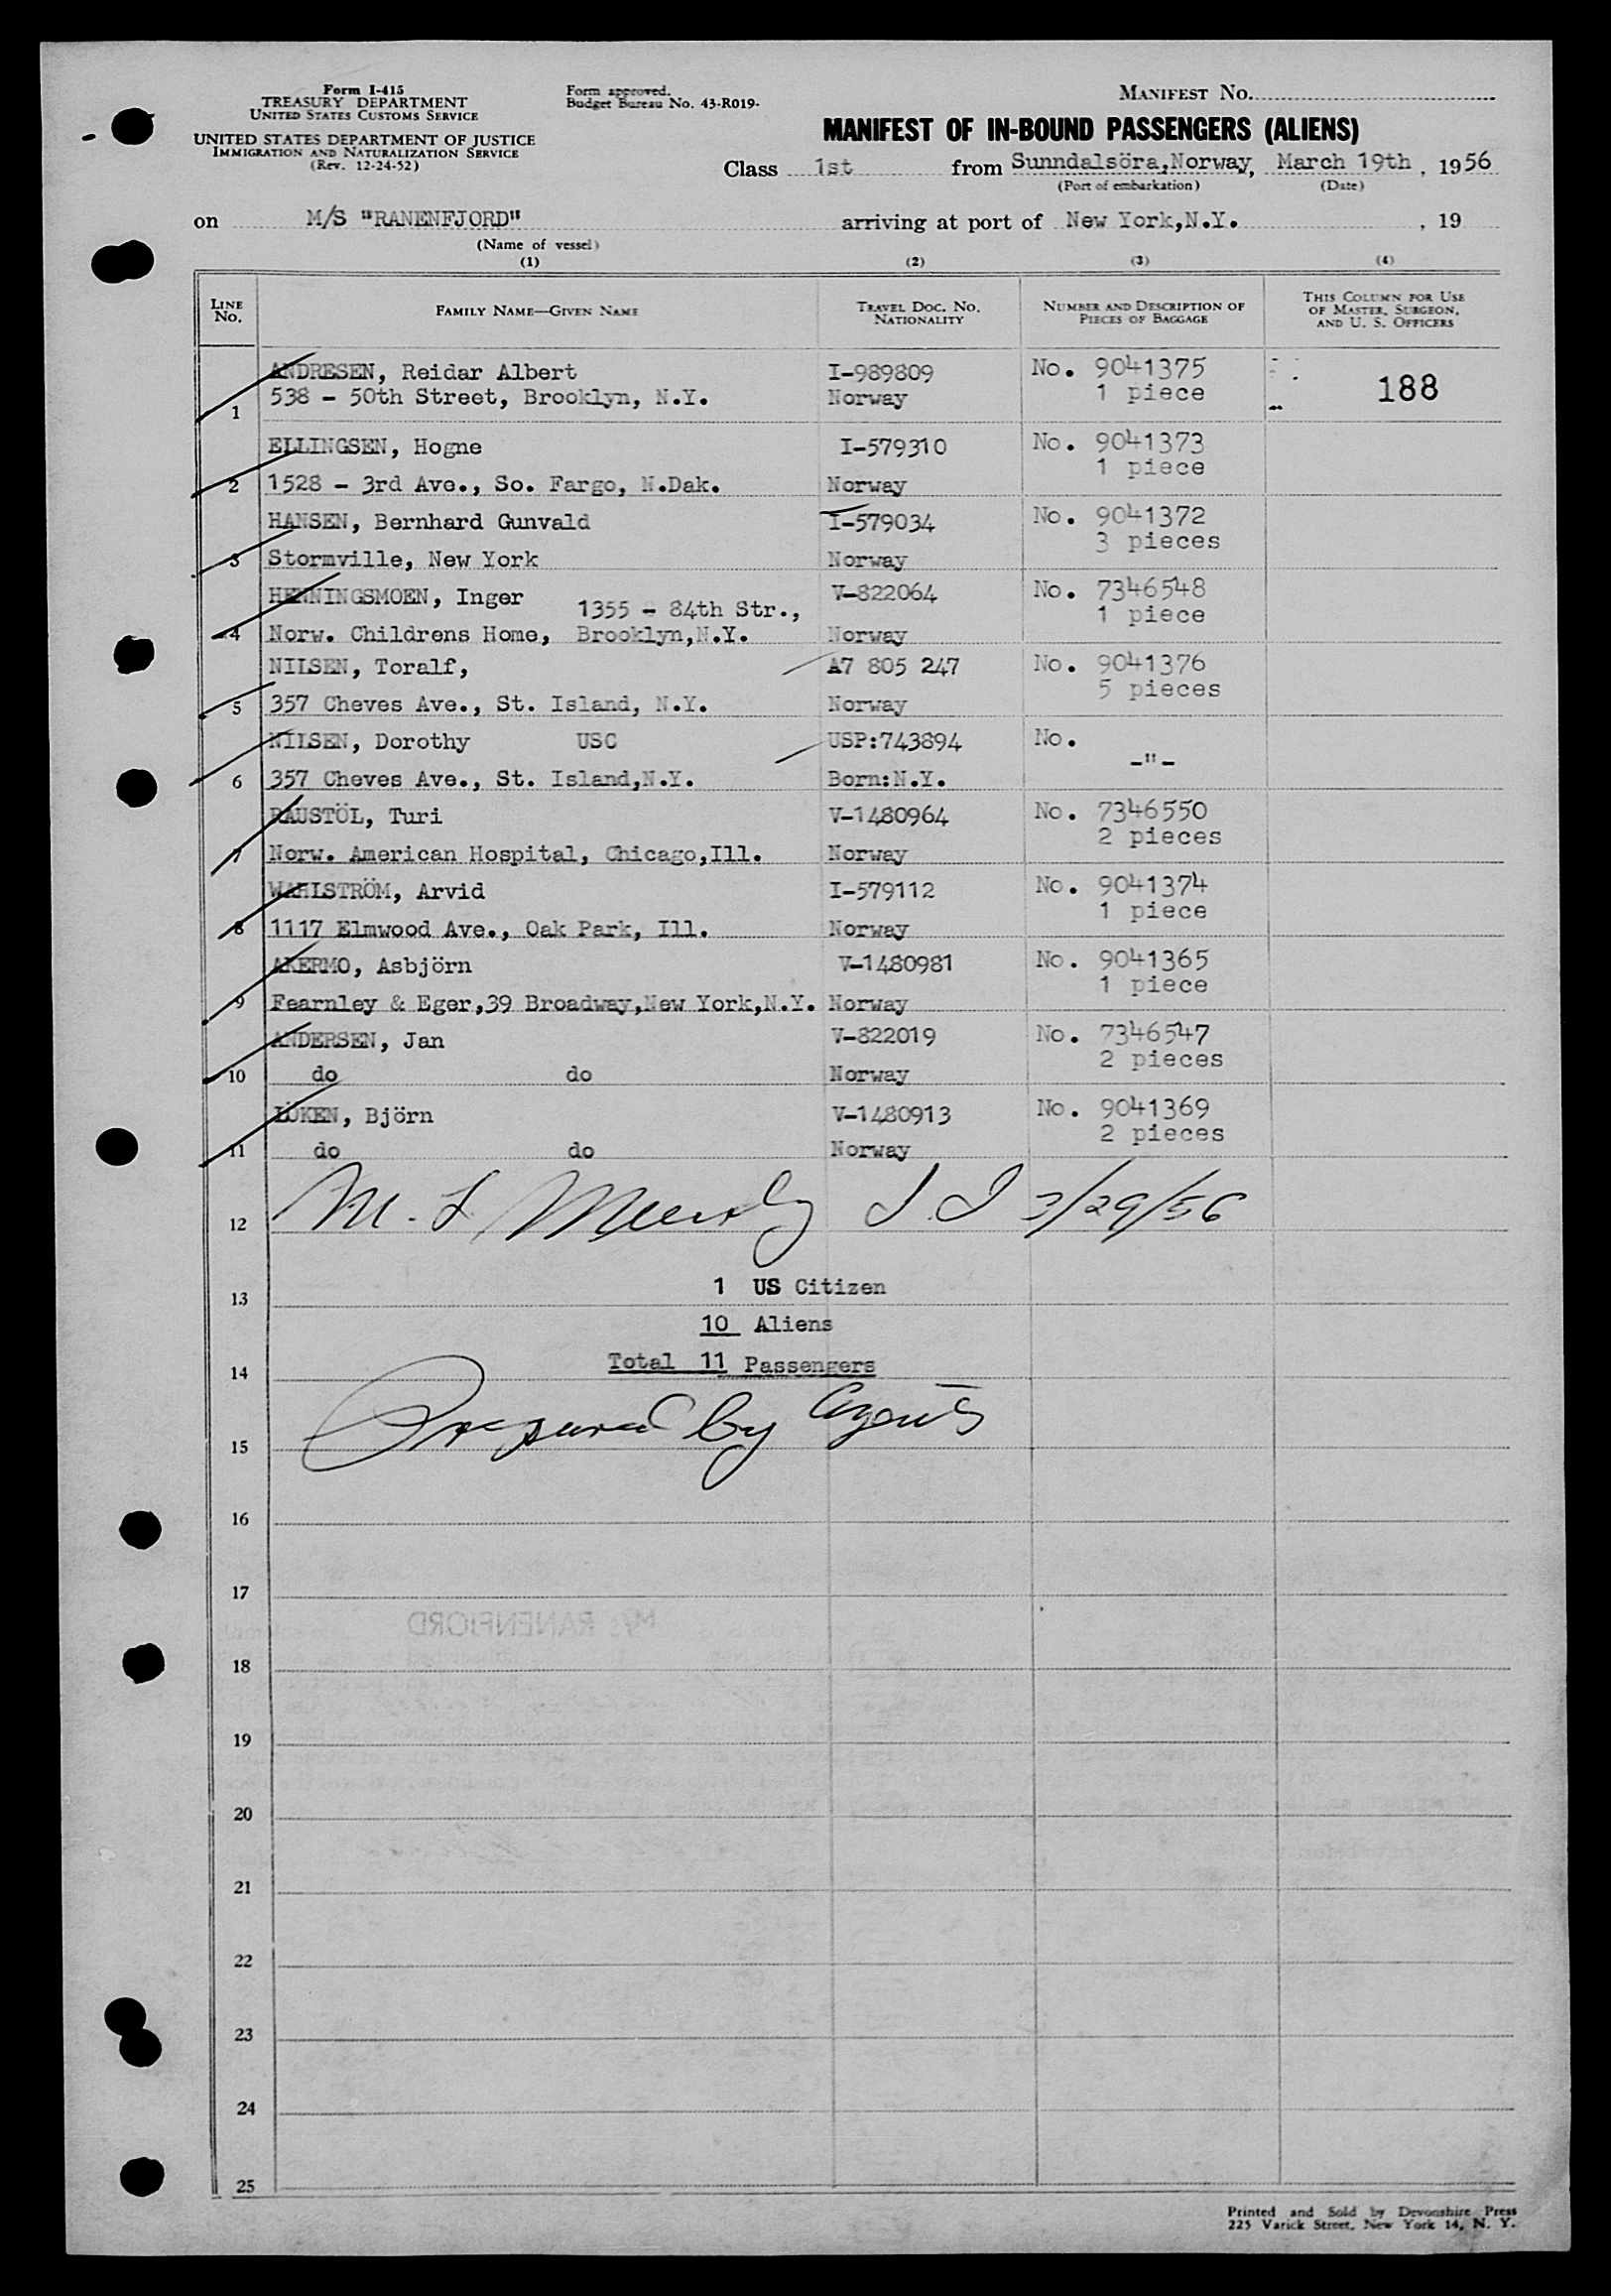 Form I-415
TREASURY DEPARTMENT
UNITED STATES CUSTOMS SERVICE
UNITED STATES DEPARTMENT OF JUSTICE
IMMIGRATION AND NATURALIZATION SERVICE
(Rev. 12-24-52)
Form approved.
Budget Bureau No. 43-R019-
MANIFEST No.
MANIFEST OF IN-BOUND PASSENGERS (ALIENS)
Class 1st from Sunndalsöra,Norway, March 19th, 1956
(Port of embarkation) (Date)
on M/S "RANENFJORD" arriving at port of New York,N.Y. , 19
(Name of vessel)
(1) (2) (3) (4)
LINE No. FAMILY NAME—GIVEN NAME TRAVEL DOC. No. NATIONALITY NUMBER AND DESCRIPTION OF PIECES OF BAGGAGE THIS COLUMN FOR USE OF MASTER, SURGEON, AND U. S. OFFICERS
ANDRESEN, Reidar Albert I-989809 No. 9041375 188
1 538 - 50th Street, Brooklyn, N.Y. Norway 1 piece
ELLINGSEN, Hogne I-579310 No. 9041373
1 piece
2 1528 - 3rd Ave., So. Fargo, N.Dak. Norway
HANSEN, Bernhard Gunvald I-579034 No. 9041372
3 pieces
3 Stormville, New York Norway
HENNINGSMOEN, Inger V-822064 No. 7346548
1355 - 84th Str., 1 piece
4 Norw. Childrens Home, Brooklyn,N.Y. Norway
NILSEN, Toralf, A7 805 247 No. 9041376
5 pieces
5 357 Cheves Ave., St. Island, N.Y. Norway
NILSEN, Dorothy USC USP:743894 No.
-"-
6 357 Cheves Ave., St. Island,N.Y. Born:N.Y.
RAUSTÖL, Turi V-1480964 No. 7346550
2 pieces
7 Norw. American Hospital, Chicago,Ill. Norway
WAHLSTRÖM, Arvid I-579112 No. 9041374
1 piece
8 1117 Elmwood Ave., Oak Park, Ill. Norway
AKERMO, Asbjörn V-1480981 No. 9041365
1 piece
9 Fearnley & Eger,39 Broadway,New York,N.Y. Norway
ANDERSEN, Jan V-822019 No. 7346547
2 pieces
10 do do Norway
LÖKEN, Björn V-1480913 No. 9041369
2 pieces
11 do do Norway
12 M. L. 3/29/56
13 1 US Citizen
10 Aliens
14 Total 11 Passengers
15 Prepared by Agents
16
17
M/S RANENFJORD
18
19
20
21
22
23
24
25
Printed and Sold by Devonshire Press
225 Varick Street, New York 14, N. Y.